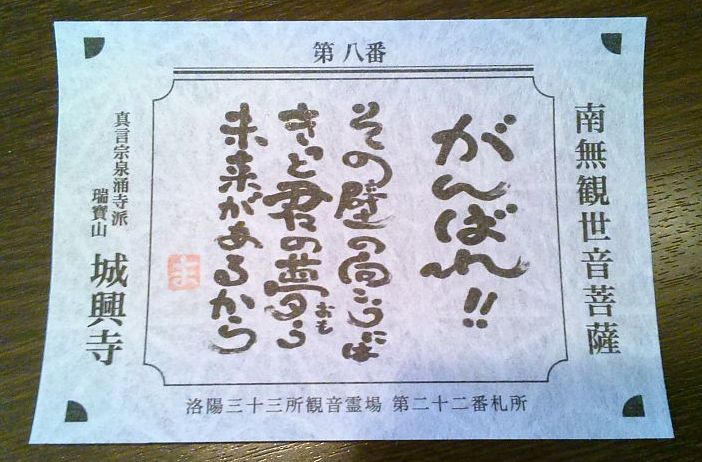 第八番
南無観世音菩薩
がんばれ!!
その壁の向こうには
きっと君の夢う
おも
未来があるから
真言宗泉涌寺派
瑞寶山
城興寺
洛陽三十三所観音霊場 第二十二番札所